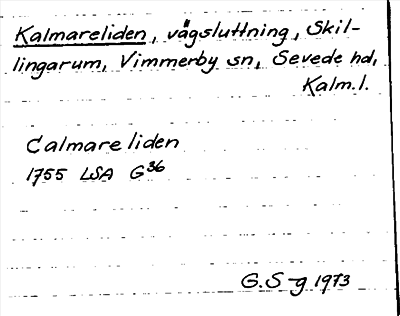 Kalmareliden, vägsluttning, Skil-
lingarum, Vimmerby sn, Sevede hd,
Kalm.l.
Calmare liden
1755 LSA G36
G.S-g 1973